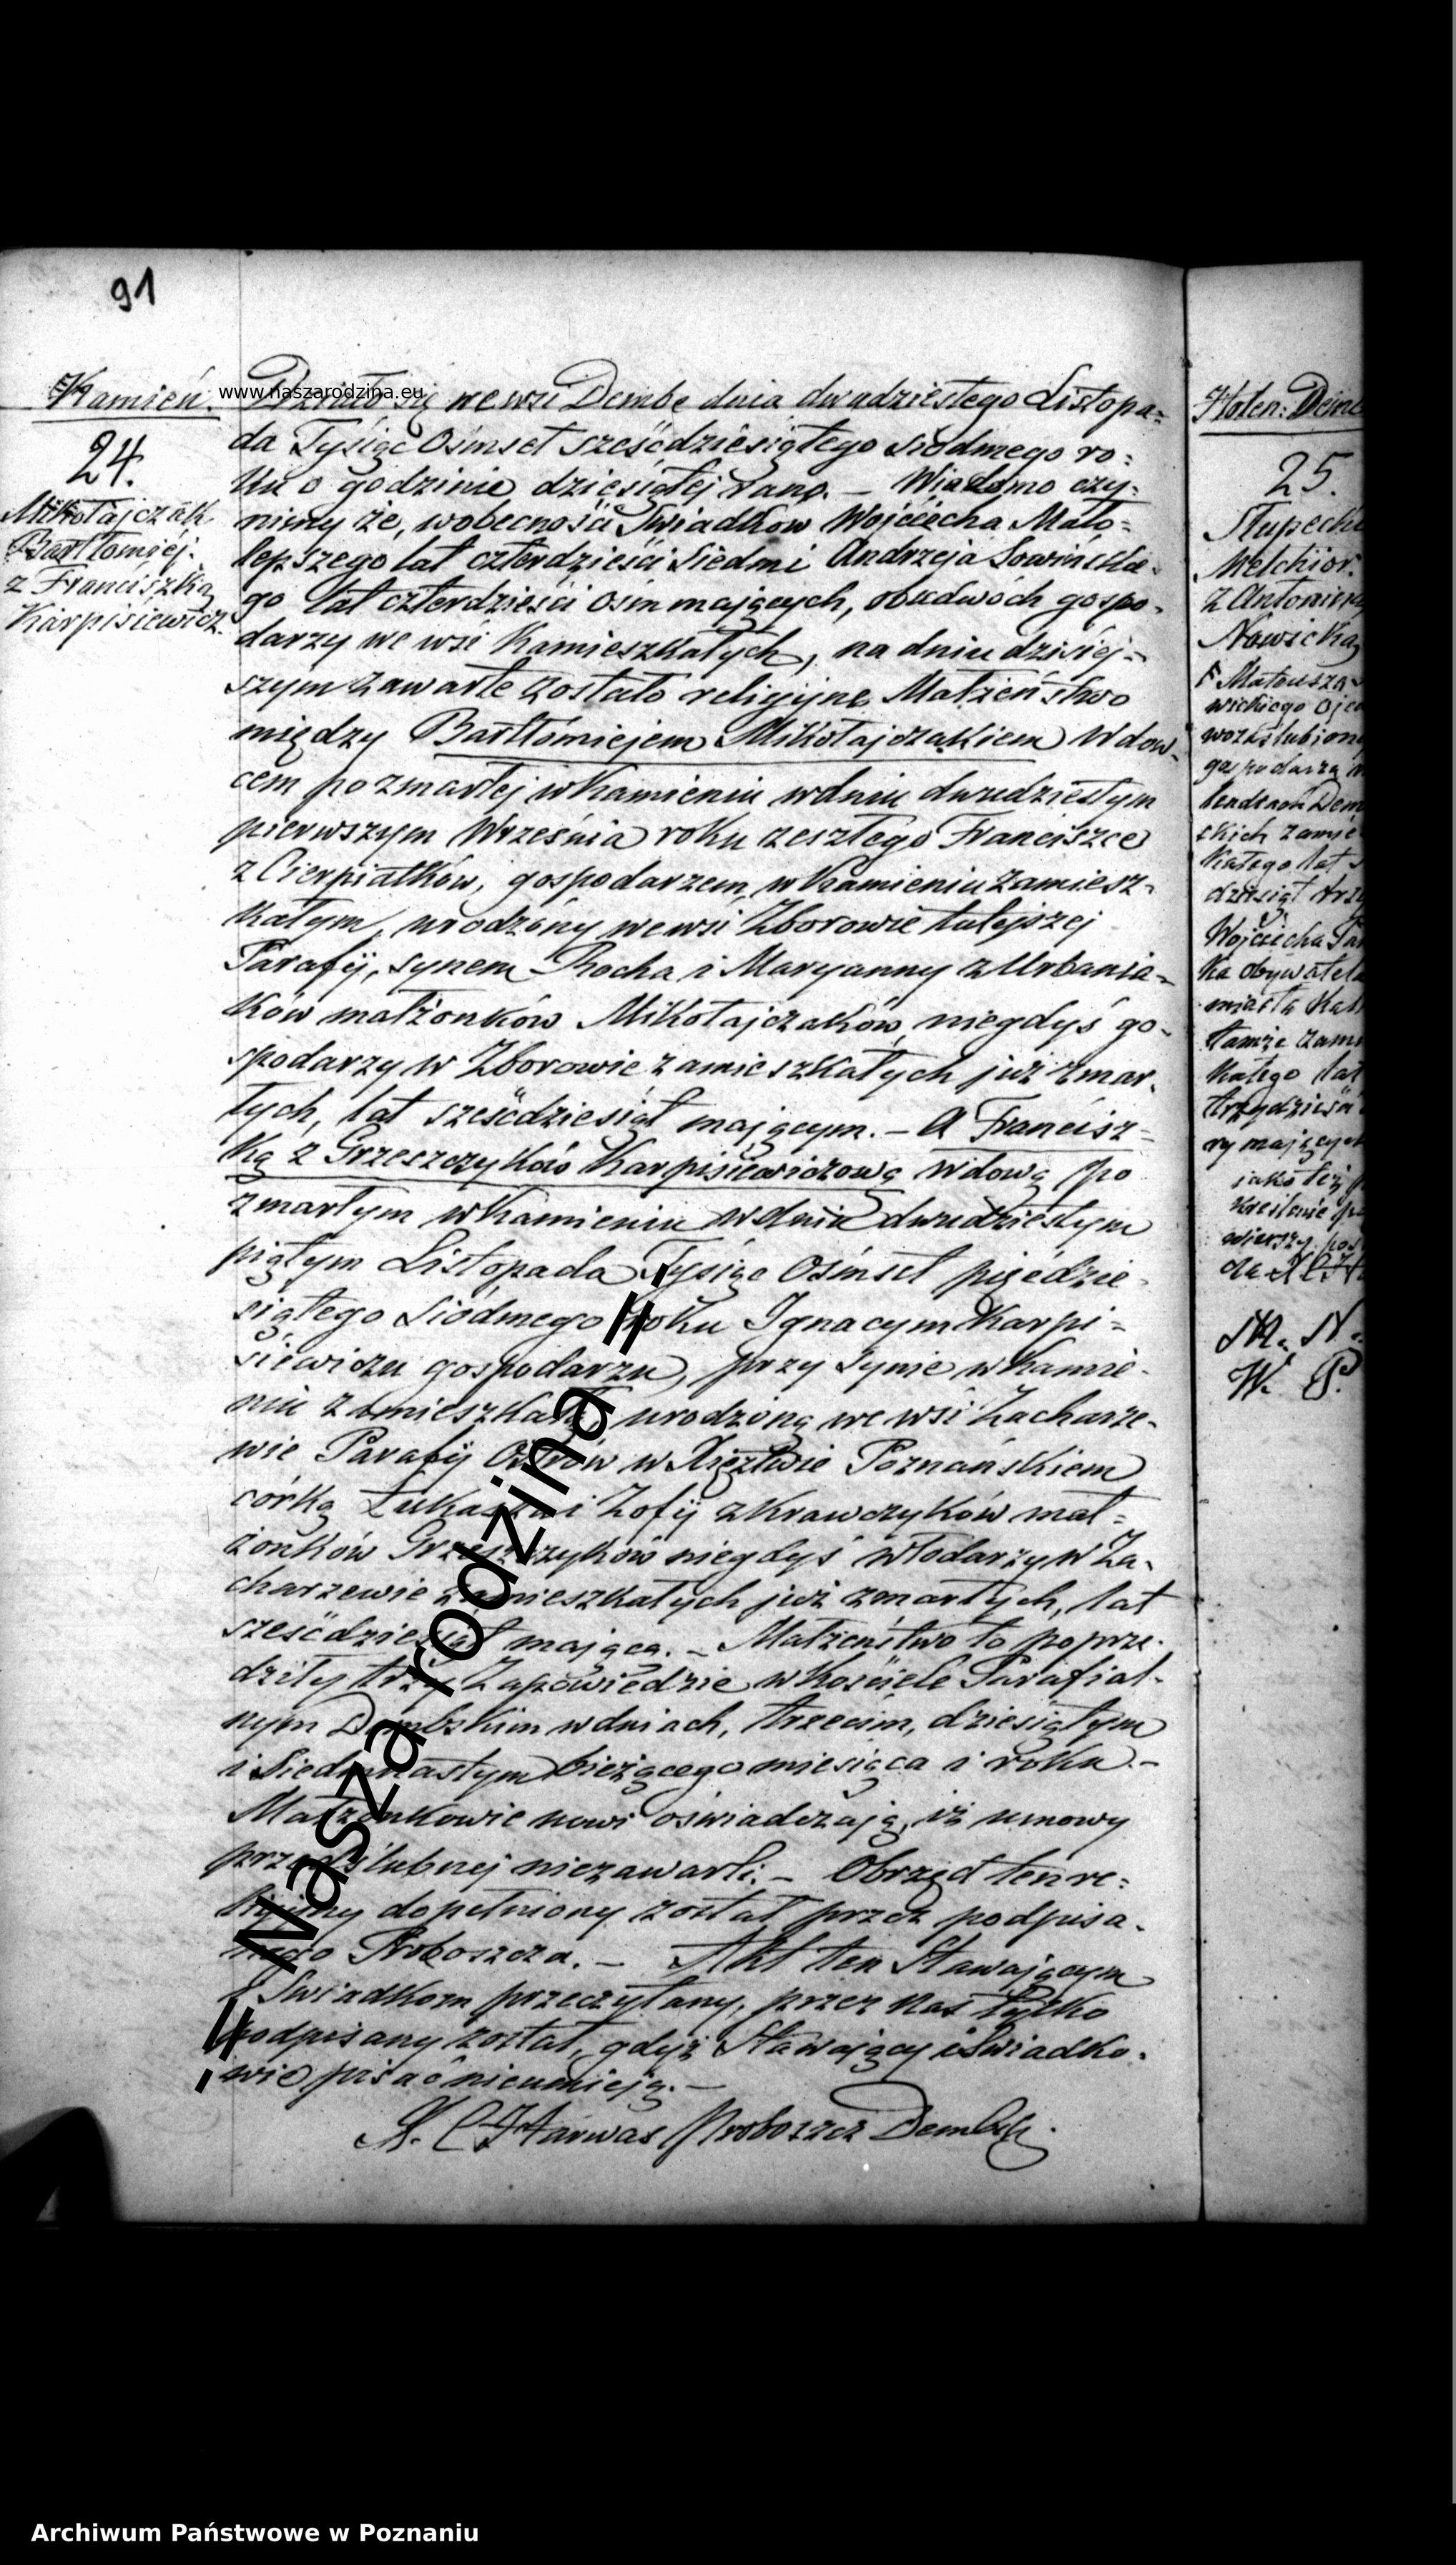 91
www.naszarodzina.eu
Kamień.
24.
Mikołajczak
Bartłomiej.
z Franciszką
Karpisiewicz.
Działo się we wsi Dembe dnia dwudziestego Listopa=
da Tysiąc Ośmset sześćdziesiątego siódmego ro=
ku o godzinie dziesiątej rano. – Wiadomo czy-
nimy że, wobecności Świadków Wojciecha Mało=
lepszego lat czterdzieści Siedm i Andrzeja Sowińskie-
go lat czterdzieści ośm mających, obudwóch gospo-
darzy we wsi Kamieszkałych, na dniu dzisiej=
szym zawarte zostało religijne Małżeństwo
między Bartłomiejem Mikołajczakiem Wdow-
cem po zmarłej w Kamieniu w dniu dwudziestym
pierwszym Września roku zeszłego Franciszce
z Cierpiatków, gospodarzem w Kamieniu zamiesz-
kałym, urodzony we wsi Zborowie tutejszej
Parafij, synem Rocha i Maryanny z Urbania-
ków małżonków Mikołajczaków, niegdyś go-
spodarzy w Zborowie zamieszkałych już zmar-
łych, lat sześćdziesiąt mającym. – A Francisz=
ką z Grzeszczyków Karpisiewiczową wdową po
zmarłym w Kamieniu w dniu dwudziestym
piątym Listopada Tysiąc Ośmset pięćdzie-
siątego Siódmego roku Ignacym Karpi=
siewiczu gospodarzu, przy Synie w Kamie-
niu zamieszkałą, urodzoną we wsi Zacharze-
wie Parafij Ostrów w Xięztwie Poznańskiem
córką Łukasza i Zofij z Krawczyków mał=
żonków Grzeszczyków niegdyś włodarzy w Za-
charzewie zamieszkałych już zmarłych, lat
sześćdziesiąt mającą. – Małżeństwo to poprze-
dziły trzy Zapowiedzie w Kościele Parafial-
nym Dembskim w dniach, trzecim, dziesiątym
i Siedmnastym bieżącego miesiąca i roku. –
Małżonkowie nowi oświadczają, iż umowy
przedślubnej niezawarli. – Obrząd ten re=
ligijny dopełniony został przez podpisa-
nego Proboszcza. – Akt ten Stawającym
i Świadkom przeczytany, przez nas tylko
podpisany został, gdyż Stawający i Świadko-
wie pisać nieumieją. –
Harwas Proboszcz Dembski.
-= Nasza rodzina =-
Holen: Demb
25.
Słupecki
Melchior.
z Antoniną
Nowicką
Mateusza
wickiego
gospodarza
Wojciecha
miasta
tamże
jako też
M. N.
W. P.
Archiwum Państwowe w Poznaniu